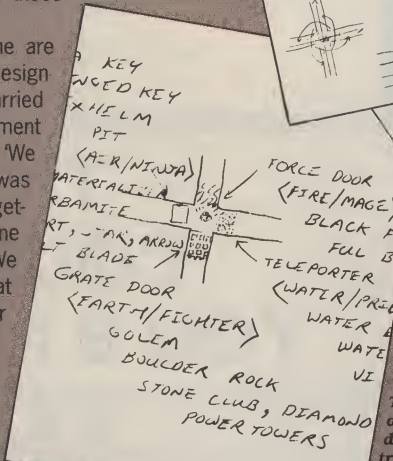 me are
esign
rried
ment
'We
was
get-
ne
We
at
r
A KEY
NCED KEY
X HELM
PIT
<AIR/NINJA>
MATERIALIZ
RBAMITE
RT, STAR, ARROW
LT BLADE
GRATE DOOR
<EARTH/FIGHTER>
GOLEM
BOULDER ROCK
STONE CLUB, DIAMOND
POWER TOWERS
FORCE DOOR
<FIRE/MAGE>
BLACK F
FUL B
TELEPORTER
<WATER/PRIE
WATER E
WATE
VI